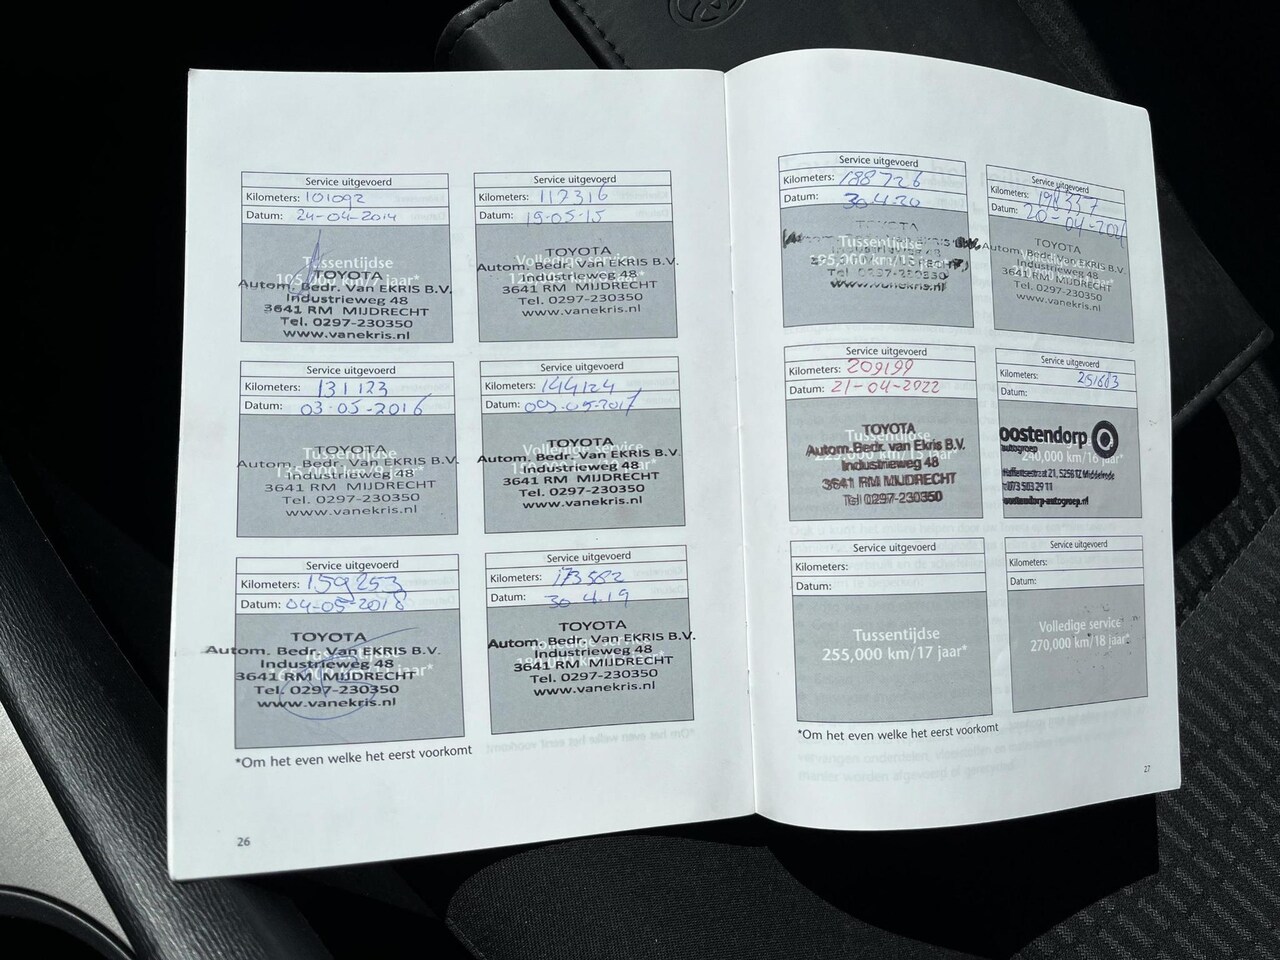 Service uitgevoerd
Kilometers: 101092
Datum: 24-04-2014
Tussentijdse
105,000 km/7 jaar*
TOYOTA
Autom. Bedr. Van EKRIS B.V.
Industrieweg 48
3641 RM MIJDRECHT
Tel. 0297-230350
www.vanekris.nl
Service uitgevoerd
Kilometers: 117316
Datum: 19-05-15
Volledige service
TOYOTA
Autom. Bedr. Van EKRIS B.V.
Industrieweg 48
3641 RM MIJDRECHT
Tel. 0297-230350
www.vanekris.nl
Service uitgevoerd
Kilometers: 131123
Datum: 03-05-2016
Tussentijdse
TOYOTA
Autom. Bedr. Van EKRIS B.V.
Industrieweg 48
3641 RM MIJDRECHT
Tel. 0297-230350
www.vanekris.nl
Service uitgevoerd
Kilometers: 144124
Datum: 09-05-2017
Volledige service
TOYOTA
Autom. Bedr. Van EKRIS B.V.
Industrieweg 48
3641 RM MIJDRECHT
Tel. 0297-230350
www.vanekris.nl
Service uitgevoerd
Kilometers: 159253
Datum: 04-05-2018
Tussentijdse
TOYOTA
Autom. Bedr. Van EKRIS B.V.
Industrieweg 48
3641 RM MIJDRECHT
Tel. 0297-230350
www.vanekris.nl
Service uitgevoerd
Kilometers: 173582
Datum: 30 4.19
Volledige service
TOYOTA
Autom. Bedr. Van EKRIS B.V.
Industrieweg 48
3641 RM MIJDRECHT
Tel. 0297-230350
www.vanekris.nl
*Om het even welke het eerst voorkomt
26
Service uitgevoerd
Kilometers: 188726
Datum: 30 4.20
Tussentijdse
195,000 km/13 jaar*
TOYOTA
Tel 0297-230350
www.vanekris.nl
Service uitgevoerd
Kilometers: 198337
Datum: 20-04-2021
TOYOTA
Autom. Bedr. Van EKRIS B.V.
Industrieweg 48
3641 RM MIJDRECHT
Tel. 0297-230350
www.vanekris.nl
Service uitgevoerd
Kilometers: 209199
Datum: 21-04-2022
Tussentijdse
TOYOTA
Autom. Bedr. Van Ekris B.V.
Industrieweg 48
3641 RM MIJDRECHT
Tel 0297-230350
Service uitgevoerd
Kilometers: 251683
Datum:
oostendorp
autogroep
240,000 km/16 jaar*
21, 5258 TZ Middelrode
073 503 29 11
oostendorp-autogroep.nl
Service uitgevoerd
Kilometers:
Datum:
Tussentijdse
255,000 km/17 jaar*
Service uitgevoerd
Kilometers:
Datum:
Volledige service
270,000 km/18 jaar*
*Om het even welke het eerst voorkomt
27